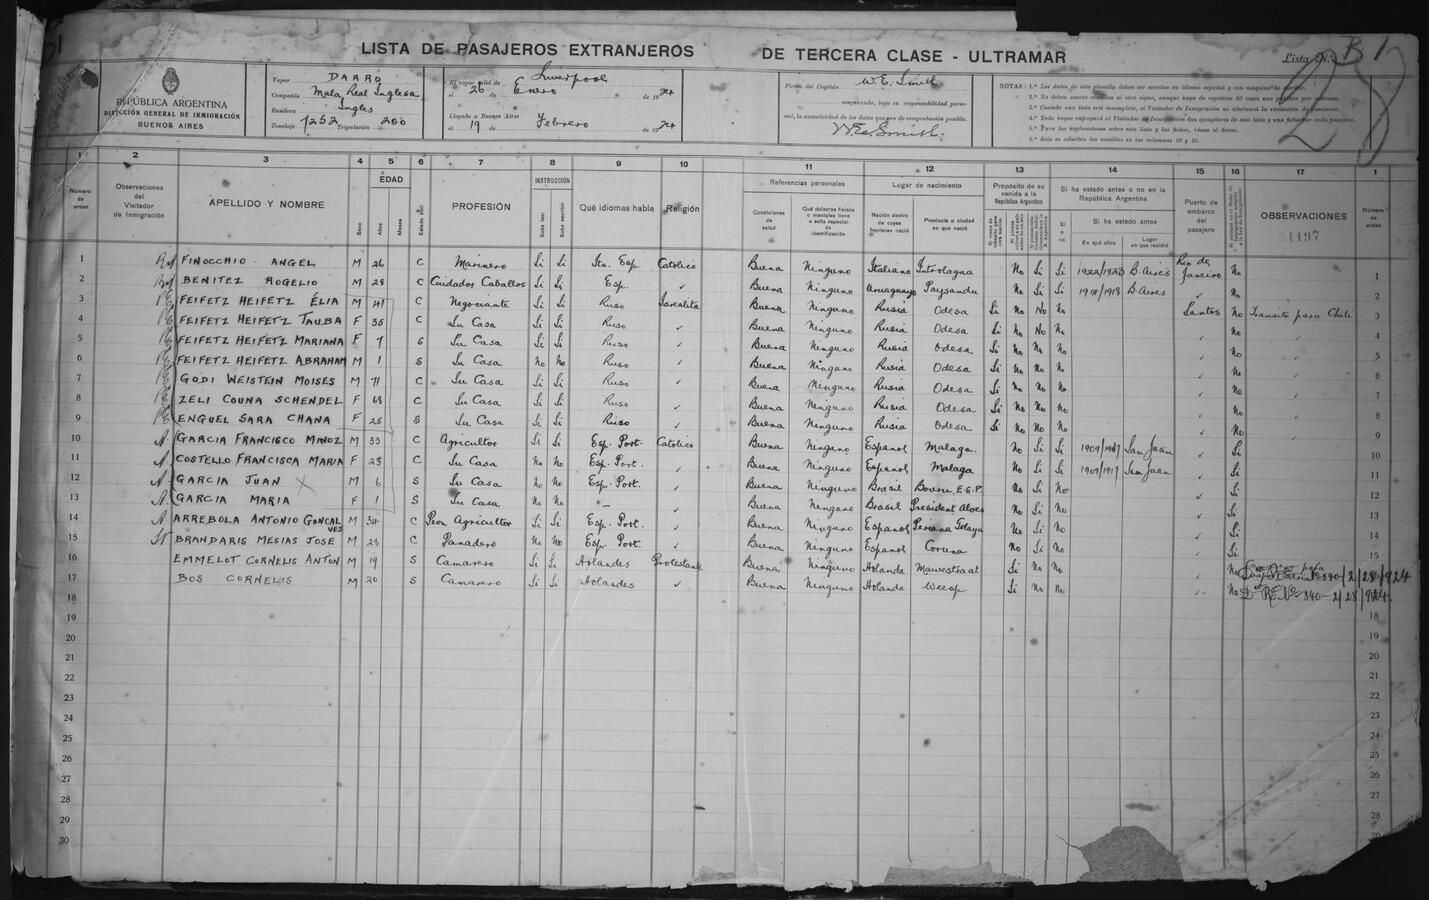 LISTA DE PASAJEROS EXTRANJEROS DE TERCERA CLASE - ULTRAMAR
Lista N. B 1
28
REPÚBLICA ARGENTINA
DIRECCIÓN GENERAL DE INMIGRACIÓN
BUENOS AIRES
Vapor DARRO
Compañía Mala Real Inglesa
Bandera Ingles
Tonelaje 7252 Tripulación 200
El vapor salió de Liverpool
el 26 de Enero de 1924
Llegado a Buenos Aires
el 19 Febrero de 1924
Firma del Capitán W.E. Smith
asegurando, bajo su responsabilidad perso-
nal, la autenticidad de los datos que son de comprobación posible.
W.E. Smith.
NOTAS: 1.ª Los datos de esta planilla deben ser escritos en idioma español y con máquina de escribir.
1 2 3 4 5 6 7 8 9 10 11 12 13 14 15 16 17 1
Número de orden
Observaciones del Visitador de Inmigración
APELLIDO Y NOMBRE
Sexo
EDAD
Años
Meses
Estado civil
PROFESIÓN
INSTRUCCIÓN
Sabe leer
Sabe escribir
Qué idiomas habla
Religión
Referencias personales
Condiciones de salud
Qué defectos físicos o mentales tiene o seña especial de identificación
Lugar de nacimiento
Nación dentro de cuyas fronteras nació
Provincia o ciudad en que nació
Propósito de su venida a la República Argentina
Si ha estado antes o no en la República Argentina
Si o no
Si ha estado antes
En qué años
Lugar en que residió
Puerto de embarco del pasajero
OBSERVACIONES
Número de orden
01197
1 FINOCCHIO ANGEL M 26 C Marinero Si Si Ita. Esp. Católico Buena Ninguno Italiano No Si Si 1922/1923 B. Aires Rio de Janeiro No 1
2 BENITEZ ROGELIO M 28 C Cuidados Caballos Si Si Esp. ✓ Buena Ninguno Uruguayo Paysandu No Si Si 1911/1918 B. Aires ✓ No 2
3 FEIFETZ HEIFETZ ÉLIA M 41 C Negociante Si Si Ruso Israelita Buena Ninguno Rusia Odesa Si No No No Santos No Transito para Chile 3
4 FEIFETZ HEIFETZ TAUBA F 35 C Su Casa Si Si Ruso ✓ Buena Ninguno Rusia Odesa Si No No No 4
5 FEIFETZ HEIFETZ MARIANA F 7 S Su Casa Si Si Ruso ✓ Buena Ninguno Rusia Odesa Si No No No ✓ No ✓ 5
6 FEIFETZ HEIFETZ ABRAHAM M 1 S Su Casa No No Ruso ✓ Buena Ninguno Rusia Odesa Si No No No ✓ No ✓ 6
7 GODI WEISTEIN MOISES M 71 C Su Casa Si Si Ruso ✓ Buena Ninguno Rusia Odesa Si No No No ✓ No ✓ 7
8 ZELI COUNA SCHENDEL F 68 C Su Casa Si Si Ruso ✓ Buena Ninguno Rusia Odesa Si No No No ✓ No ✓ 8
9 ENGUEL SARA CHANA F 25 S Su Casa Si Si Ruso ✓ Buena Ninguno Rusia Odesa Si No No No ✓ No ✓ 9
10 GARCIA FRANCISCO MANOZ M 33 C Agricultor Si Si Esp. Port. Católico Buena Ninguno Espanol Malaga No Si Si 1909/1917 San Juan ✓ Si 10
11 COSTELLO FRANCISCA MARIA F 23 C Su Casa No No Esp. Port. ✓ Buena Ninguno Espanol Malaga No Si Si 1909/1917 San Juan ✓ Si 11
12 GARCIA JUAN M 6 S Su Casa No No Esp. Port. ✓ Buena Ninguno Brasil E.S.P. No Si No ✓ Si 12
13 GARCIA MARIA F 1 S Su Casa No No - ✓ Buena Ninguno Brasil President Alves No Si No ✓ Si 13
14 ARREBOLA ANTONIO GONCALVES M 34 C Peon Agricultor Si Si Esp. Port. ✓ Buena Ninguno Espanol No Si No ✓ Si 14
15 BRANDARIS MESIAS JOSE M 28 C Panadero No No Esp. Port. ✓ Buena Ninguno Espanol Coruna No Si No ✓ Si 15
16 EMMELOT CORNELIS ANTON M 19 S Camarero Si Si Holandes Protestante Buena Ninguno Holanda Si No No ✓ No 340/2/28/924
17 BOS CORNELIS M 20 S Camarero Si Si Holandes ✓ Buena Ninguno Holanda Weesp Si No No ✓ No Nº 340-2/28/924.
18 18
19 19
20 20
21 21
22 22
23 23
24 24
25 25
26 26
27 27
28 28
29
30